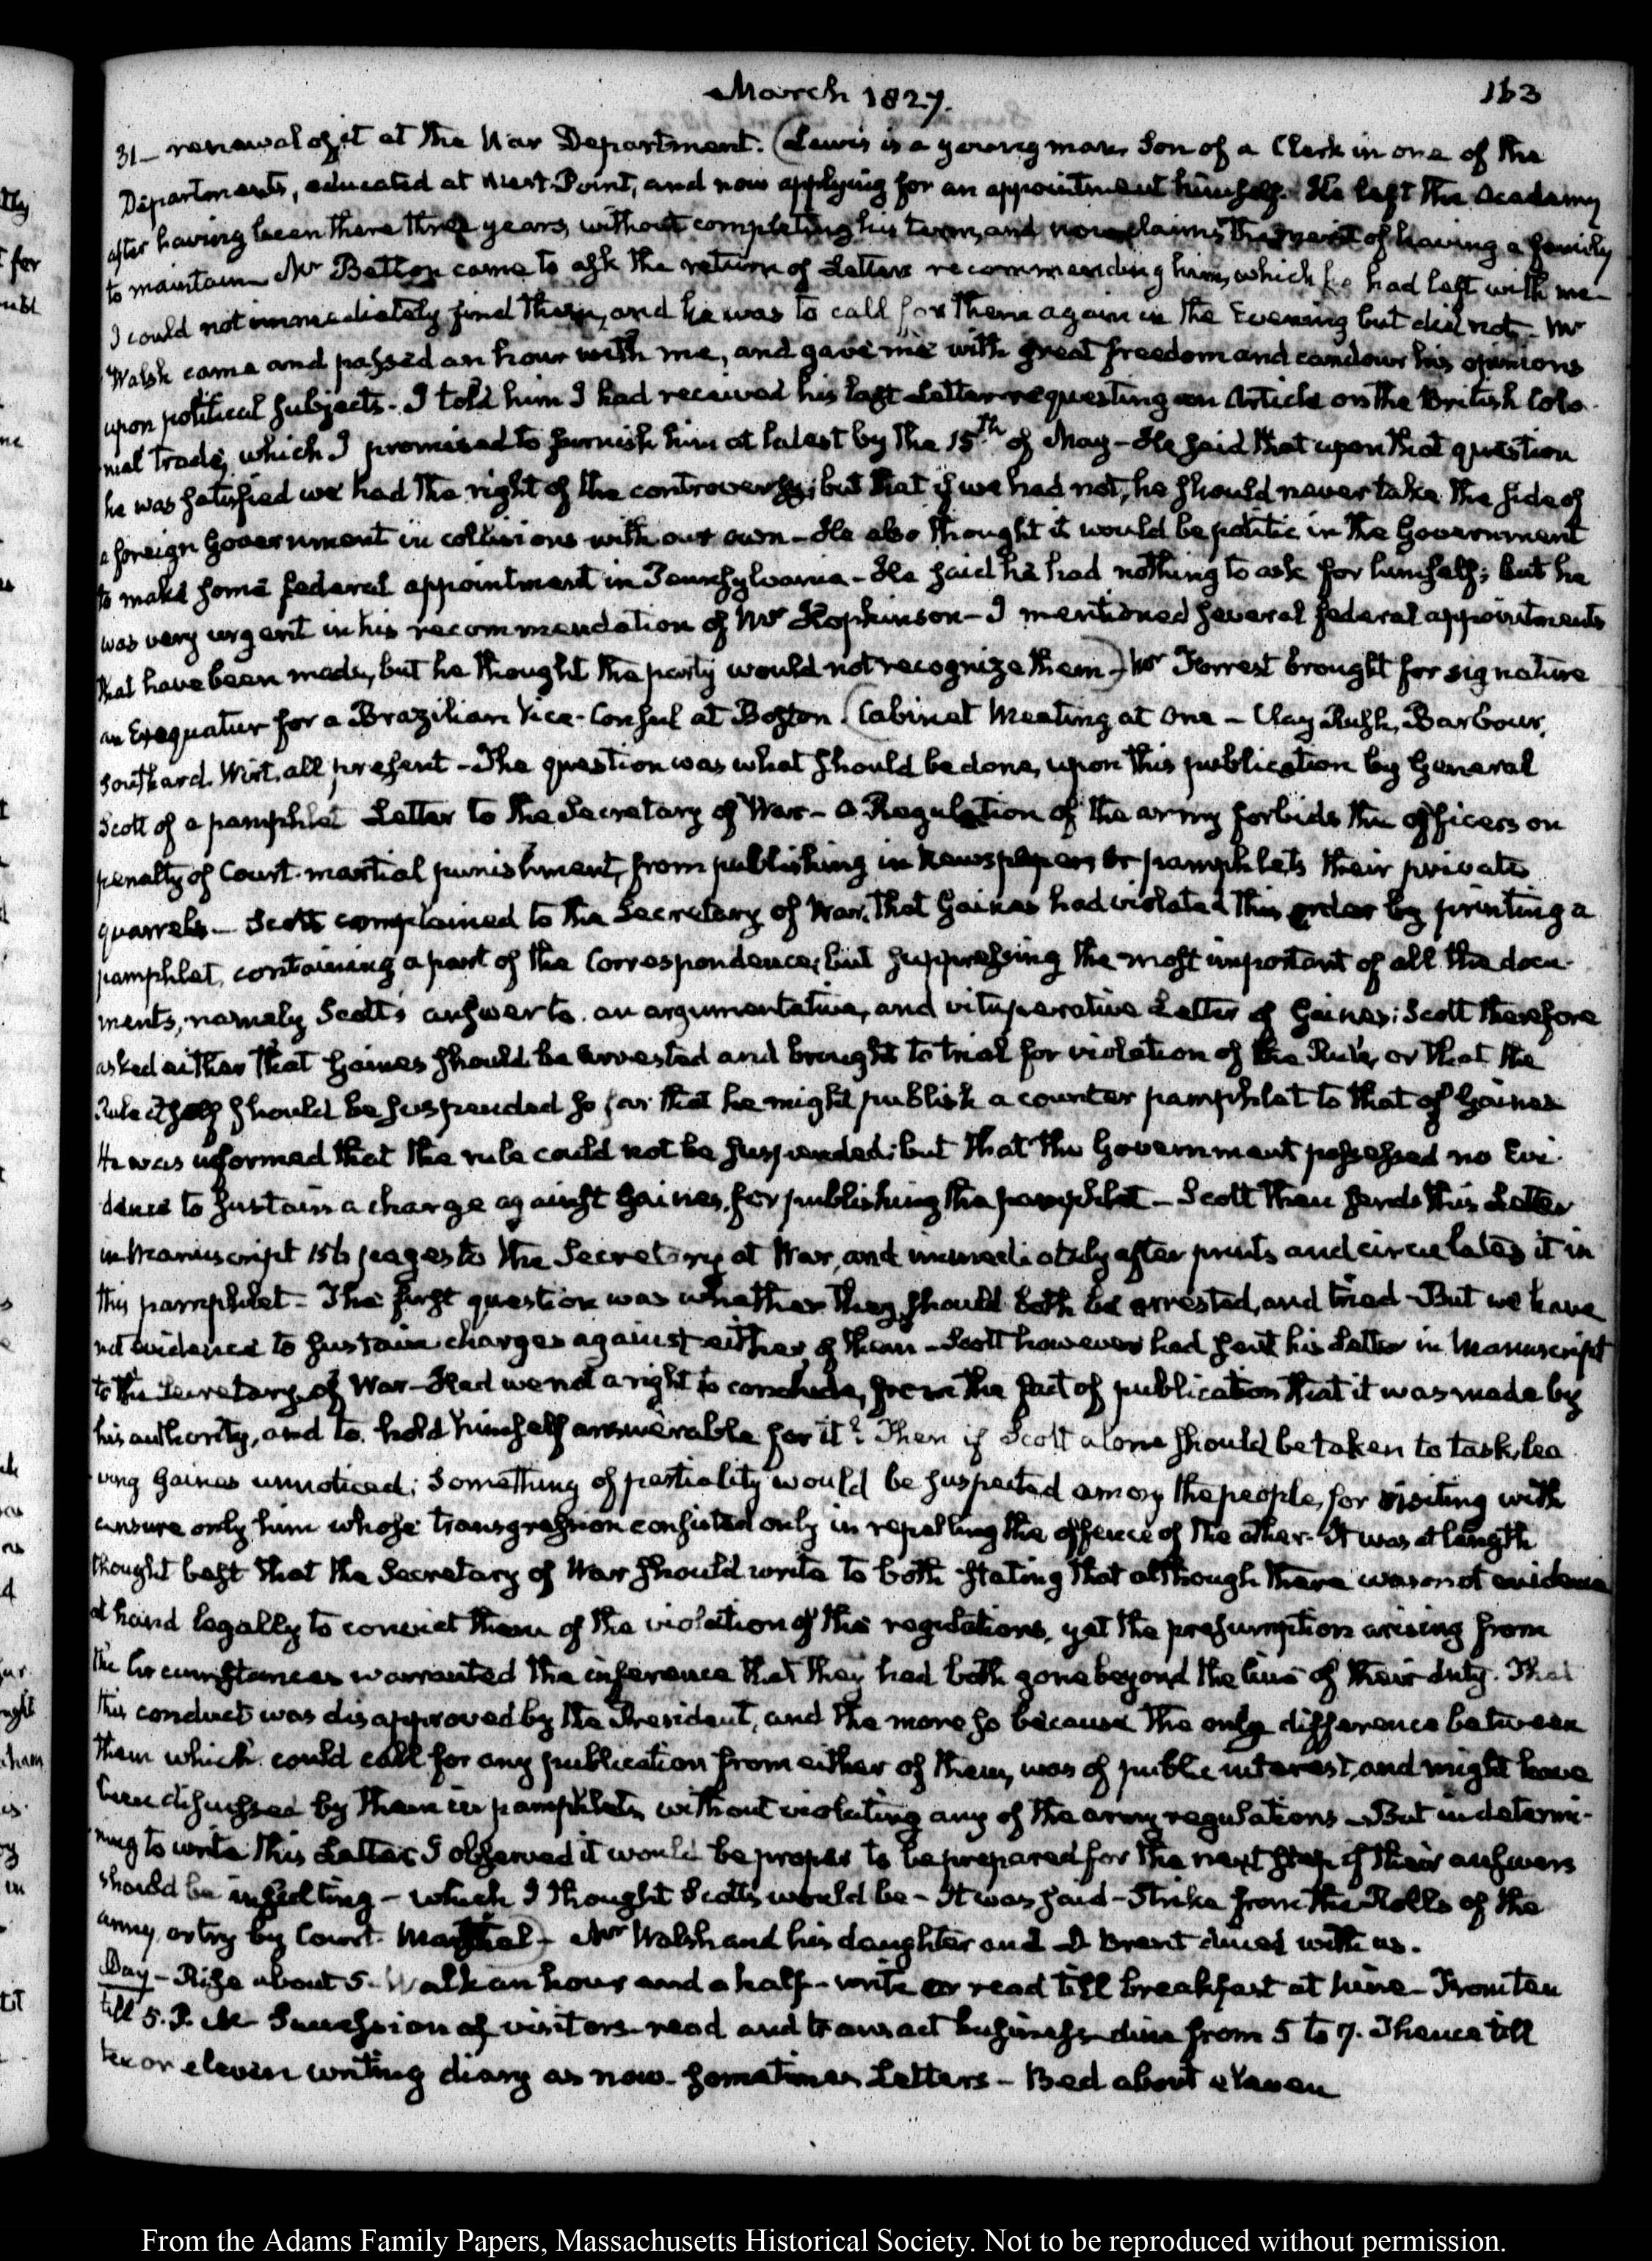 March 1827.
163
31– renewal of it at the War Department. (Lewis is a young man, Son of a Clerk in one of the
Departments, educated at West-Point, and now applying for an appointment himself. He left the Academy
after having been there three years, without completing his term, and now claims the merit of having a family
to maintain Mr came to ask the return of Letters recommending him, which he had left with me–
I could not immediately find them, and he was to call for them again in the Evening but did not– Mr
Walsh came and passed an hour with me, and gave me with great freedom and candour his opinions
upon political subjects– I told him I had received his last Letter requesting an Article on the British Colo-
nial trade, which I promised to furnish him at latest by the 15th of May– He said that upon that question
he was satisfied we had the right of the controversy; but that if we had not, he should never take the side of
a foreign Government in collisions with our own– He also thought it would be politic in the Government
to make some federal appointment in Pennsylvania– He said he had nothing to ask for himself; but he
was very urgent in his recommendation of Mr Hopkinson– I mentioned several federal appointments
that have been made, but he thought the party would not recognize them–) Mr Forrest brought for signature
an Exequatur for a Brazilian Vice-Consul at Boston. (Cabinet Meeting at One– Clay Rush, Barbour,
Southard. Wirt, all present– The question was what should be done, upon this publication by General
Scott of a pamphlet Letter to the Secretary of War– A Regulation of the army forbids the officers on
penalty of Court-martial punishment, from publishing in Newspapers or pamphlets their private
quarrels– Scott complained to the Secretary of War, that Gaines had violated this order by printing a
pamphlet, containing a part of the Correspondence; but suppressing the most important of all the docu-
ments, namely Scott's answer to an argumentative, and vituperative Letter of Gaines: Scott therefore
asked either that Gaines should be arrested and brought to trial for violation of the Rule, or that the
Rule itself should be suspended so far that he might publish a counter pamphlet to that of Gaines
He was informed that the rule could not be suspended; but that the Government possessed no Evi-
dence to sustain a charge against Gaines, for publishing the pamphlet– Scott then sends this Letter
in Manuscript 156 pages to the Secretary at War, and immediately after prints and circulates it in
this pamphlet– The first question was whether they should both be arrested, and tried– But we have
not evidence to sustain charges against either of them– Scott however had sent his Letter in Manuscript
to the Secretary of War– Had we not a right to conclude, from the fact of publication that it was made by
his authority, and to hold himself answerable for it? Then if Scott alone should be taken to task, lea-
ving Gaines unnoticed; Something of partiality would be suspected among the people, for visiting with
censure only him whose transgression consisted only in repelling the offence of the other– It was at length
thought best that the Secretary of War should write to both stating that although there was not evidence
at hand legally to convict them of the violation of the regulations, yet the presumption arising from
the Circumstances warranted the inference that they had both gone beyond the line of their duty. That
this conduct was disapproved by the President, and the more so because the only difference between
them which could call for any publication from either of them, was of public interest, and might have
been discussed by them in pamphlets, without violating any of the army regulations– But in determi-
ning to write this Letter I observed it would be proper to be prepared for the next step if their answers
should be insulting– which I thought Scott's would be– It was said– Strike from the Rolls of the
army, or try by Court-Martial–) Mr Walsh and his daughter and D Brent dined with us.
Day– Rise about 5– Walk an hour and a half– write or read till breakfast at nine– From ten
till 5. P.M. Succession of visitors– read and transact business– dine from 5 to 7. Thence till
ten or eleven writing diary as now– sometimes Letters– Bed about eleven
From the Adams Family Papers, Massachusetts Historical Society. Not to be reproduced without permission.